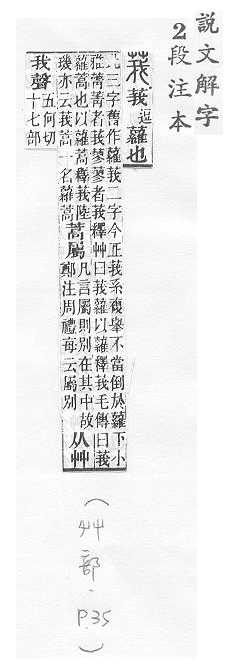 說文解字
2段注本
莪 莪逗蘿也
此三字舊作蘿莪二字今正莪系複舉不當倒於蘿下小
雅菁菁者莪蓼蓼者莪釋艸曰莪蘿以蘿釋莪毛傳曰莪
蘿蒿也以蘿蒿釋莪陸
璣亦云莪蒿一名蘿蒿
蒿屬
凡言屬則別在其中故
鄭注周禮每云屬別
从艸
我聲
五何切
十七部
(艸部.P35)